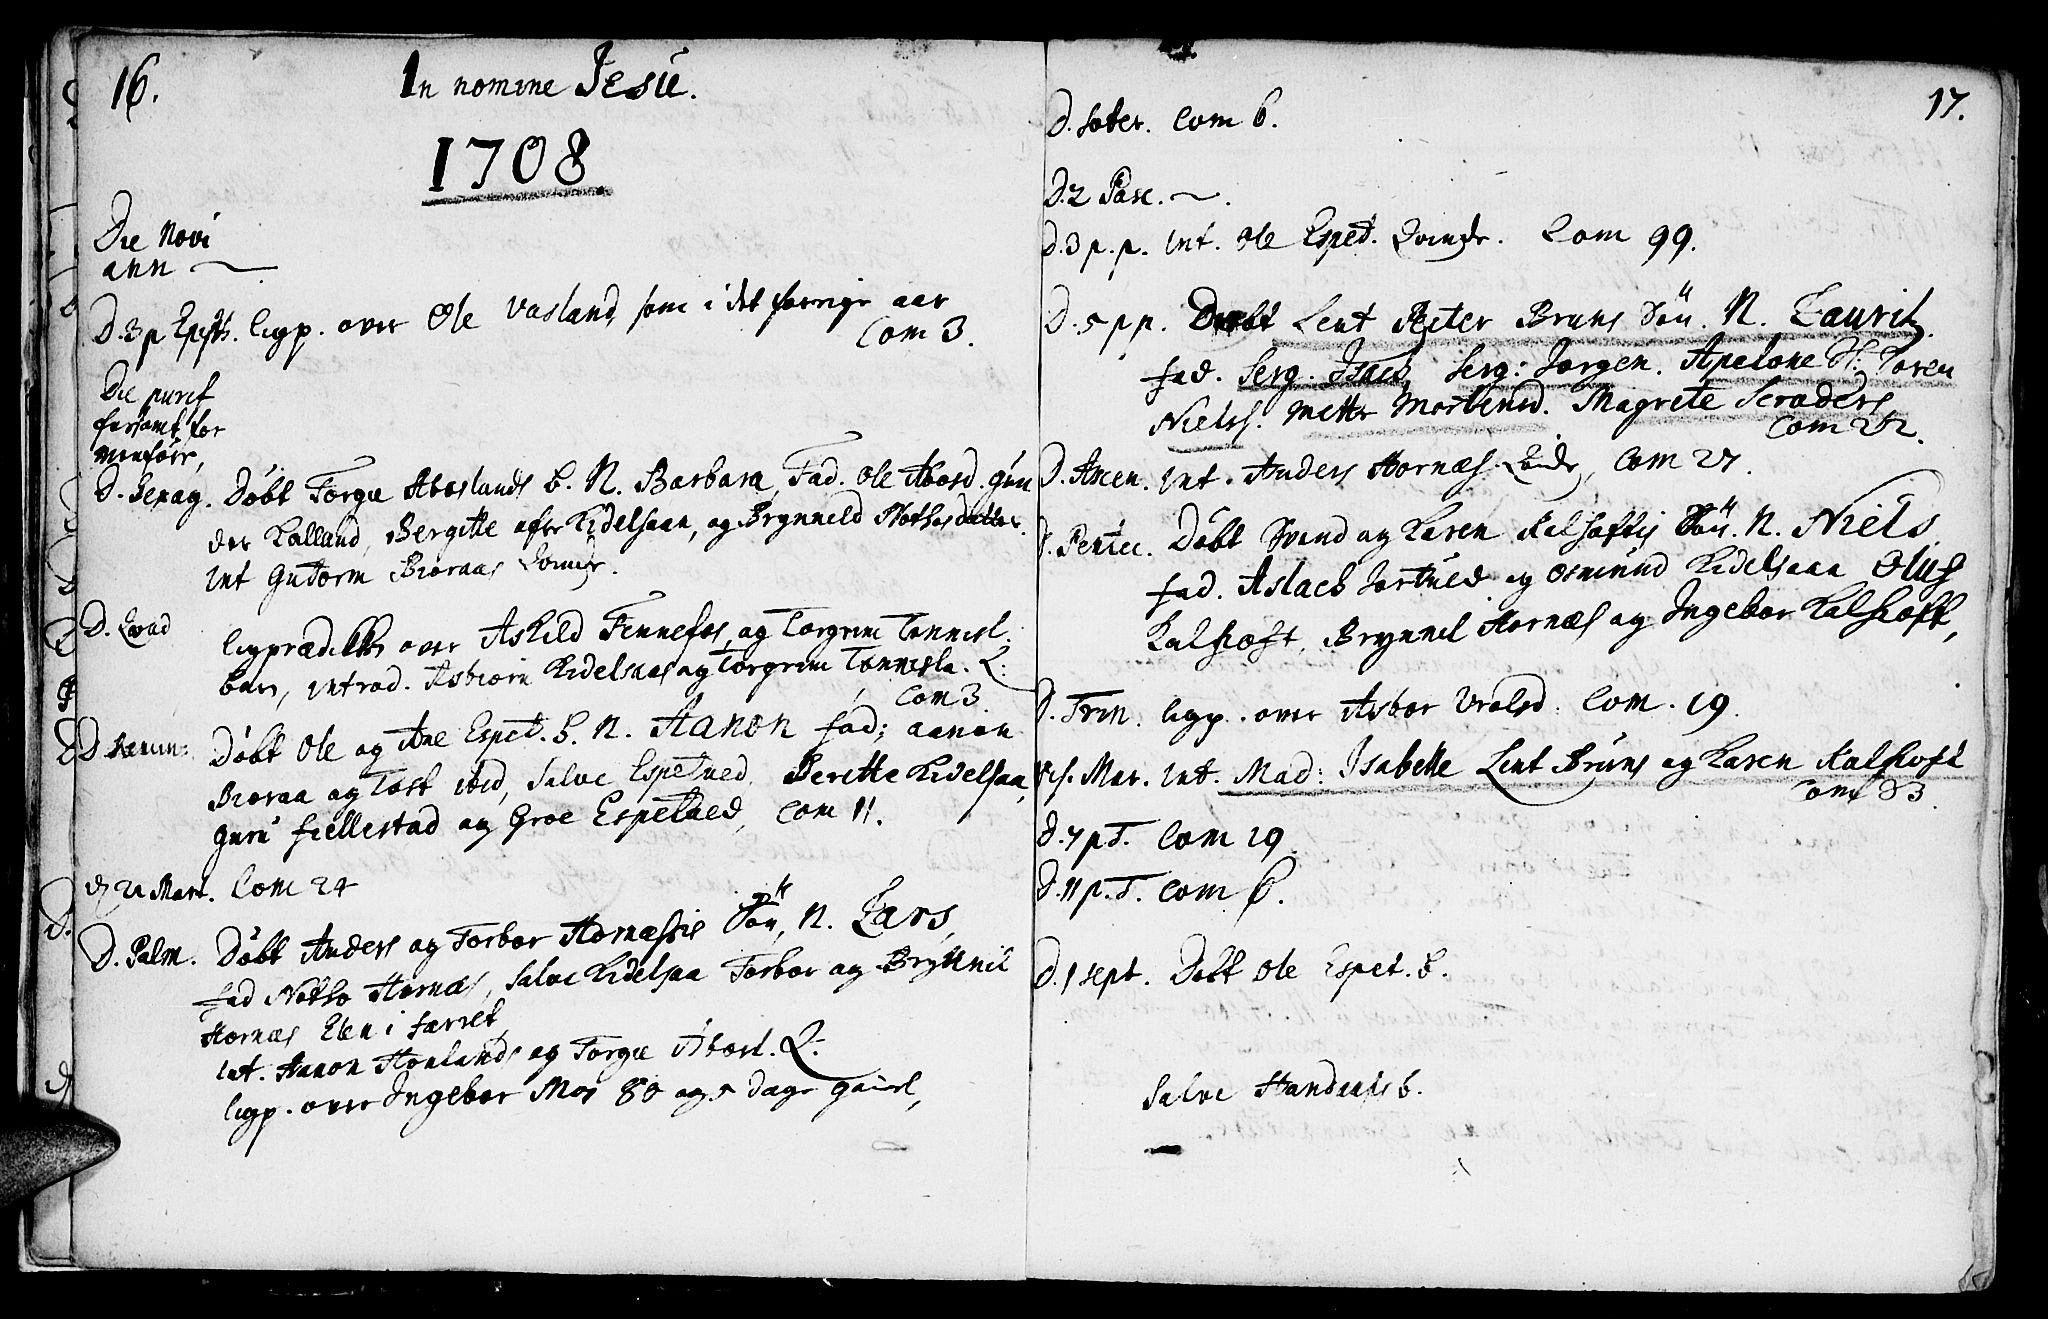 16.
In nomine Jesu.
1708
Die Novi
ann
D. 3 p Epiph. ligp. over Ole Vasland, som i det forrige aar
Com 3.
Die purif
forsamt for
D. Sexag. Døbt Torgie Abeslands b. N. Barbara, Fad. Ole Abosd. gun
der Kalland, Bergitte Kidelsaan, og Brynneld
Int Gutorm Bioraas Qvinde.
D. Qvad
ligprædikk over Askild Fennefos, og Torgrim Tonnesl.
barn, introd. Asbiorn Kidelsaas og Torgrim Tonnesla. Q:
Com 3.
Døbt Ole og Ane Espet. b. N. Aanon fad: aanon
Bioraa og Tost ibid, Salve Espetved, Berette Kidelsaa,
guru fiellestad og Groe Espetved, Com 11.
d 21 Mart. Com 24
D. Palm. Døbt Anders og Torbor Hornæssis Søn, N. Lars,
fad Hornæs, Salve Kidelsaa Torbor og Bryttnil
Hornæs Elen i færret,
Int. Aanon Honlands og Torgie Abosl. Q:
ligp. over Ingebor Mos 80 og 5 dage gaml,
17.
D. Soter. Com 6.
D. 2 Pasc.
D. 3 p. p. Int. Ole Espet. Qvinde. Com 99.
D. 5 p p. Døbt Leut Peiter Bruns Søn. N. Laurit.
fad. Serg. Isach, Serg: Jorgen. Apelone Soren
Niels. Mette Mortensd. Magrete Scraders
Com 22.
D. Ascen. Int. Anders Hornæs Qvinde, Com 27.
D. Pentec. Døbt Svend og Karen Kalhoftis Søn. N. Niels.
fad. Aslach Jortved og Osmund Kidelsaaa Oluf
Kalhoft. Brynnil Hornæs og Ingebor Kalhoft,
D. Trin. ligp. over Asbor Com. 19.
Vis. Mar. Int. Mad: Isabelle Leut Bruns og Karen Kalhoft
Com 83.
D. 7 p T. Com 19.
D. 11 p. T. Com 6.
D. 1 sept. Døbt Ole Espet. b.
Salve b.